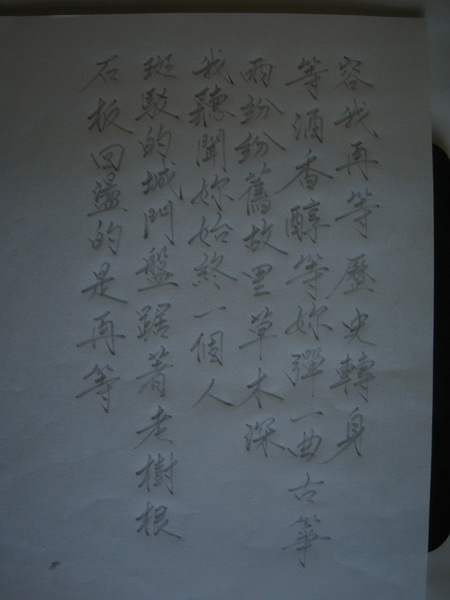 容我再等歷史轉身
等酒香醇等妳彈一曲古箏
雨紛紛舊故里草木深
我聽聞妳始終一個人
斑駁的城門盤踞著老樹根
石板回盪的是再等